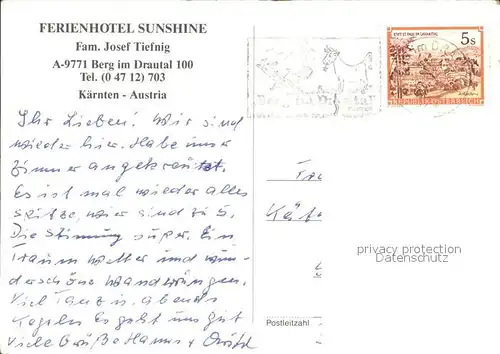 FERIENHOTEL SUNSHINE
Fam. Josef Tiefnig
A-9771 Berg im Drautal 100
Tel. (0 47 12) 703
Kärnten - Austria
Ihr Lieben! Wir sind
wieder hier. Habe
Zimmer
Es ist mal wieder alles
Spitze, wir sind zu 5.
Die Stimmung super. Ein
Traum wetter und wun-
derschöne Wanderungen.
Viel Tanz u. abends
Kegeln Es geht uns gut
Viele Grüße Hannes +
5s
REPUBLIK ÖSTERREICH
privacy protection
Datenschutz
Postleitzahl